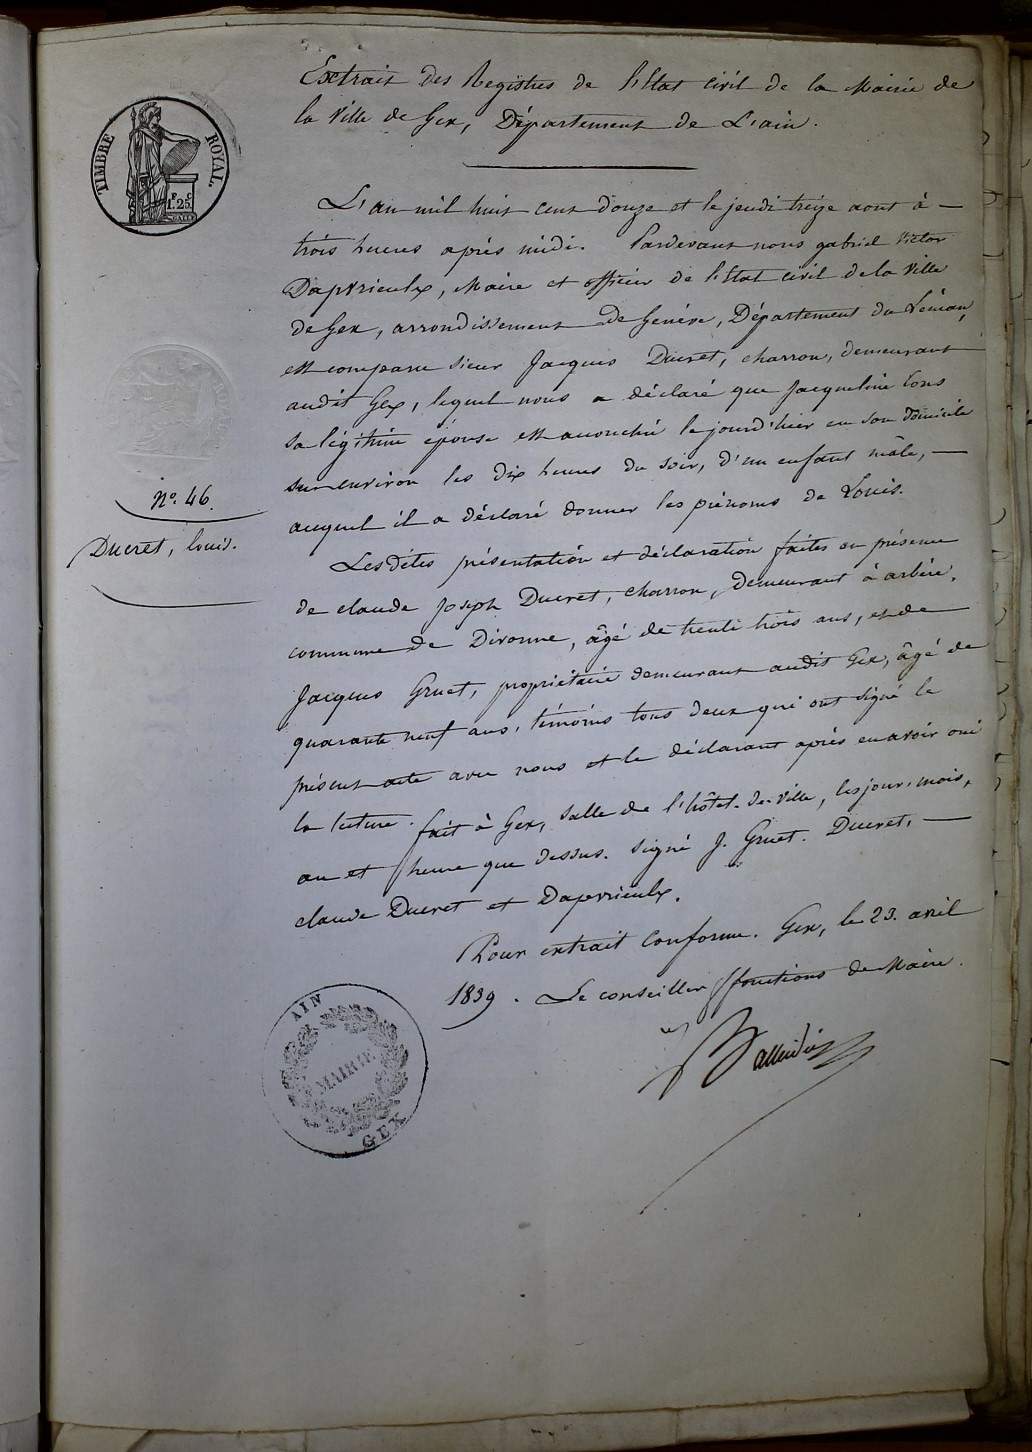 Extrait des Registres de l'Etat civil de la Mairie de
la Ville de Gex, Département de L'ain.
TIMBRE ROYAL.
1F. 25C
L'an mil huit cent d'ouze et le jeudi treize aout à —
trois heures après midi. Pardevant nous gabriel Victor
Dapvrieulx, Maire et officier de l'Etat civil de la Ville
de Gex, arrondissement de Genève, Département du Léman,
est comparu sieur Jacques Ducret, charron, demeurant
audit Gex, lequel nous a déclaré que Jacqueline
sa légitime épouse est accouchée le jourd'hier en son domicile
sur environ les dix heures du soir, d'un enfant mâle, —
auquel il a déclaré donner les prénoms de Louis.
N°. 46.
Ducret, louis.
Lesdites présentation et déclaration faites en présence
de claude Joseph Ducret, charron, demeurant à arbère,
commune de Divonne, âgé de trente trois ans, et de
Jacques Gruet, propriétaire demeurant audit Gex, âgé de
quarante neuf ans, témoins tous deux qui ont signé le
présent acte avec nous et le déclarant après en avoir oui
la lecture. fait à Gex, salle de l'hôtel-de-ville, les jour, mois,
an et heure que dessus. signé J. Gruet. Ducret, —
claude Ducret et Dapvrieulx.
Pour extrait conforme. Gex, le 23. avril
1839. Le conseiller ff fonctions de Maire.
AIN
MAIRIE
GEX